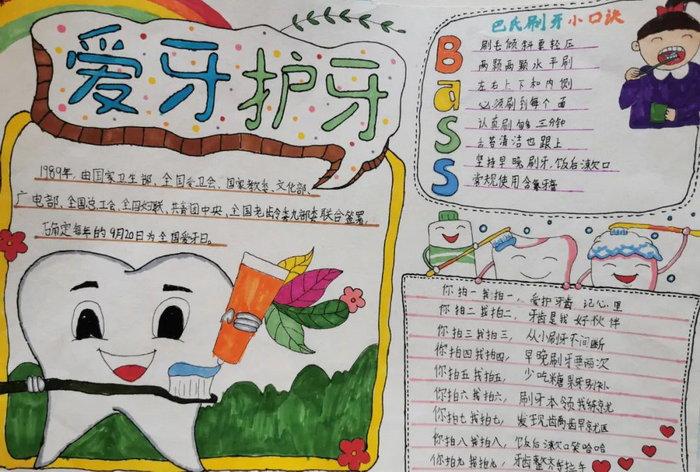 爱牙护牙
1989年,由国家卫生部、全国爱卫会、国家教委、文化部、
广电部、全国总工会、全国妇联、共青团中央、全国老龄委九部委联合签署,
确定每年的9月20日为全国爱牙日。
巴氏刷牙小口诀
BaSS
刷毛倾斜要轻压
两颗两颗水平刷
左右上下和内侧
必须刷到每个面
认真刷够三分钟
舌苔清洁也跟上
坚持早晚刷牙、饭后漱口
常规使用含氟牙膏
你拍一我拍一,爱护牙齿记心里
你拍二我拍二,牙齿是我好伙伴
你拍三我拍三,从小刷牙不间断
你拍四我拍四,早晚刷牙要两次
你拍五我拍五,少吃糖果
你拍六我拍六,刷牙本领我
你拍七我拍七,发现
你拍八我拍八,饭后漱口笑哈哈
你拍九我拍九,牙齿